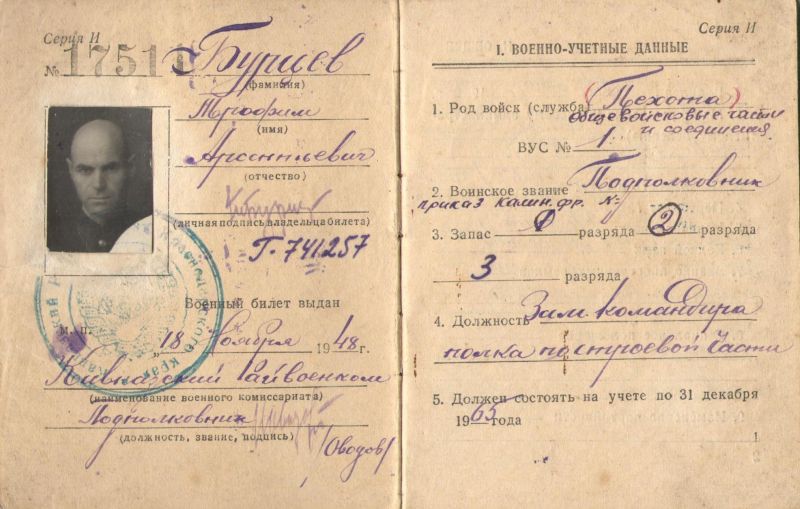 Серия И
№ 17511
Бурцев
(фамилия)
Трофим
(имя)
Арсентьевич
(отчество)
(личная подпись владельца билета)
Г-741257
Военный билет выдан
М. П.
"18 Ноября 1948 г.
Кавказский Райвоенком
(наименование военного комиссариата)
Подполковник
(должность, звание, подпись)
/Оводов/
Серия И
I. ВОЕННО-УЧЕТНЫЕ ДАННЫЕ
1. Род войск (служба) (Пехота)
общевойсковые части
и соединения
ВУС № 1
2. Воинское звание Подполковник
приказ Калин. фр. №
3. Запас 1 разряда 2 разряда
3 разряда
4. Должность Зам. командира
полка по строевой части
5. Должен состоять на учете по 31 декабря
1965 года
1